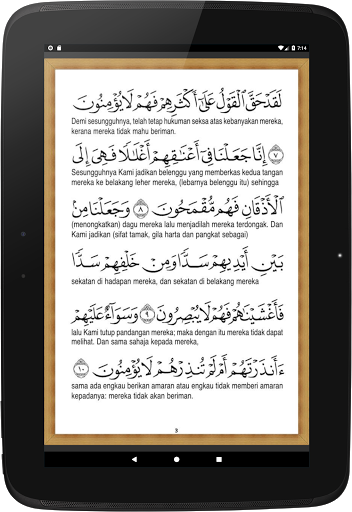 7:14
لَقَدْ حَقَّ ٱلْقَوْلُ عَلَىٰٓ أَكْثَرِهِمْ فَهُمْ لَا يُؤْمِنُونَ
Demi sesungguhnya, telah tetap hukuman seksa atas kebanyakan mereka,
kerana mereka tidak mahu beriman.
٧ إِنَّا جَعَلْنَا فِىٓ أَعْنَٰقِهِمْ أَغْلَٰلًا فَهِىَ إِلَى
Sesungguhnya Kami jadikan belenggu yang memberkas kedua tangan
mereka ke belakang leher mereka, (lebarnya belenggu itu) sehingga
ٱلْأَذْقَانِ فَهُم مُّقْمَحُونَ ٨ وَجَعَلْنَا مِنۢ
(menongkatkan) dagu mereka lalu menjadilah mereka terdongak. Dan
Kami jadikan (sifat tamak, gila harta dan pangkat sebagai)
بَيْنِ أَيْدِيهِمْ سَدًّا وَمِنْ خَلْفِهِمْ سَدًّا
sekatan di hadapan mereka, dan sekatan di belakang mereka
فَأَغْشَيْنَٰهُمْ فَهُمْ لَا يُبْصِرُونَ ٩ وَسَوَآءٌ عَلَيْهِمْ
lalu Kami tutup pandangan mereka; maka dengan itu mereka tidak dapat
melihat. Dan sama sahaja kepada mereka,
ءَأَنذَرْتَهُمْ أَمْ لَمْ تُنذِرْهُمْ لَا يُؤْمِنُونَ ١٠
sama ada engkau berikan amaran atau engkau tidak memberi amaran
kepadanya: mereka tidak akan beriman.
3